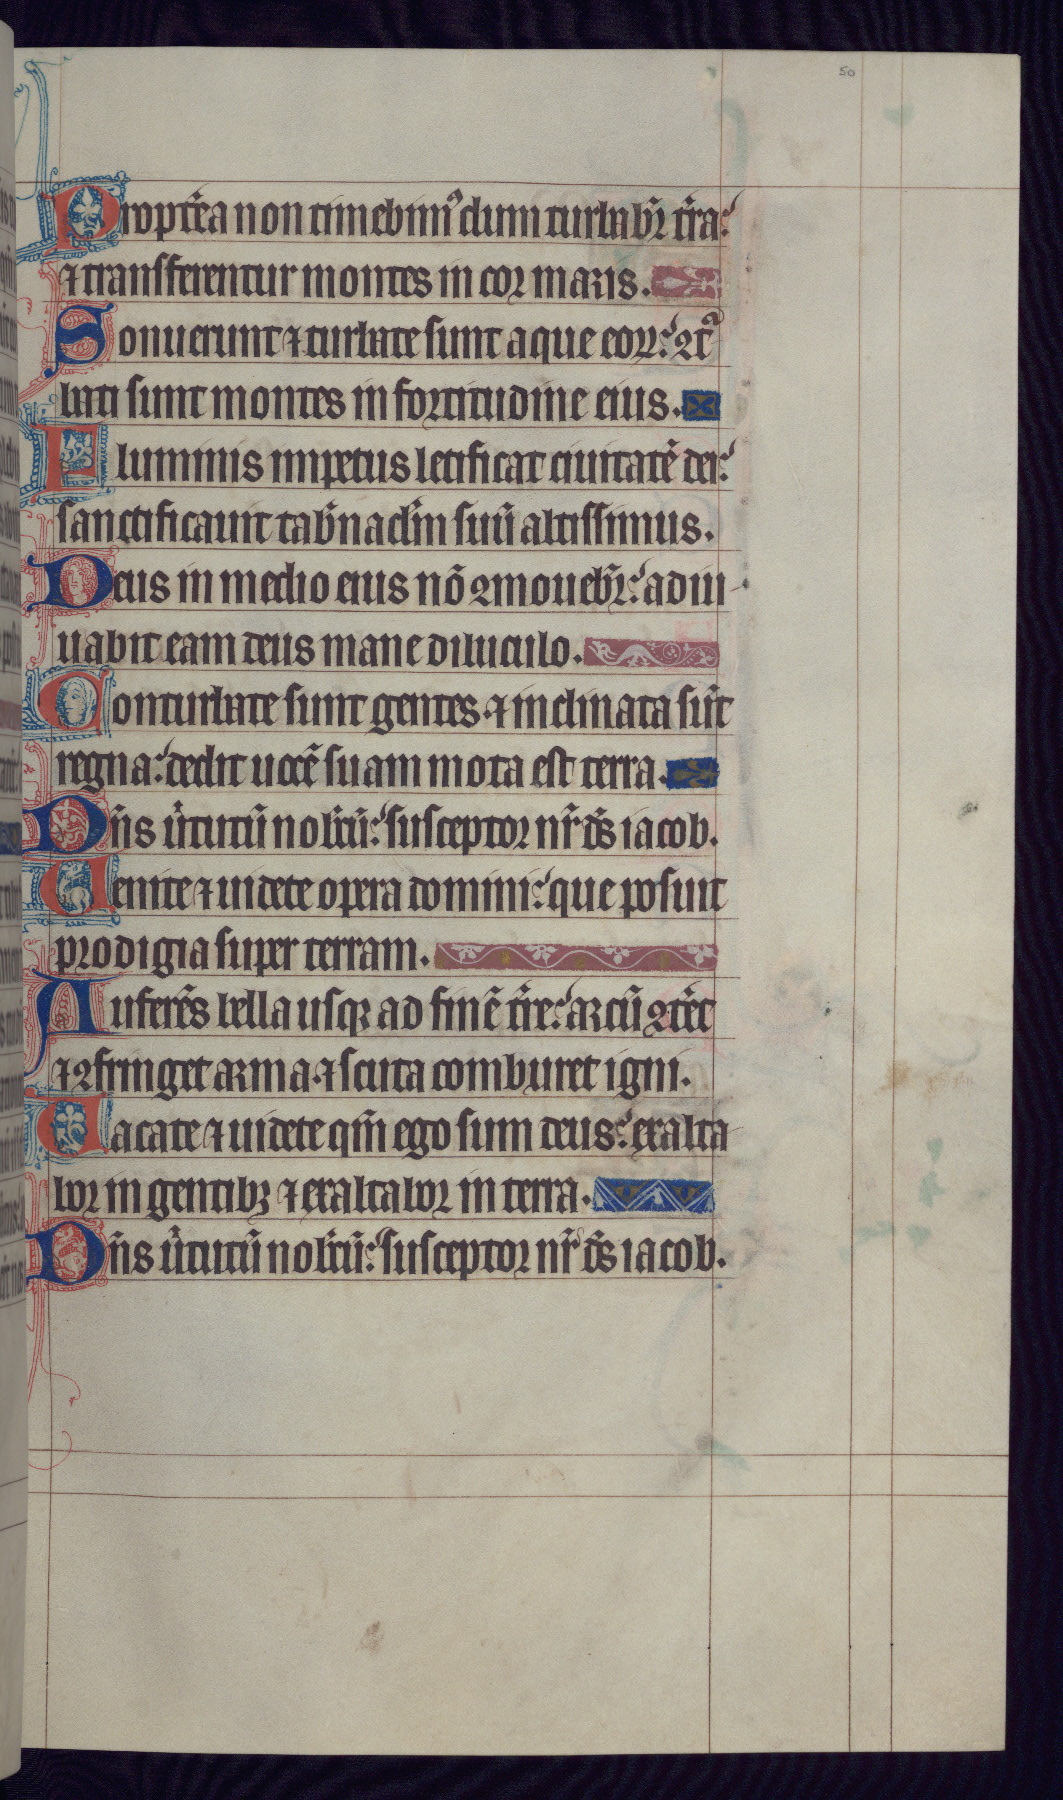 50
Propt̄ea non timebimꝰ dum turbabr̄ t̄ra:
⁊ transferentur montes in cor maris.
Sonuerunt ⁊ turbate sunt aque eoꝝ: ꝯtͣ
bati sunt montes in fortitudine eius.
Fluminis impetus letificat ciuitatē dei:
sanctificauit tab̄nacl̄m suū altissimus.
Deus in medio eius nō ꝯmouebr̄: adiu
uabit eam deus mane diluculo.
Conturbate sunt gentes ⁊ inclinata sūt
regna: dedit uocē suam mota est terra.
Dn̄s u̇tutū nobc̄ū: susceptor nr̄ ds̄ iacob.
Uenite ⁊ uidete opera domini: que posuit
prodigia super terram.
Auferēs bella usqꝫ ad finē t̄re: arcū ꝯtēt
⁊ ꝯfringet arma ⁊ scuta comburet igni.
Uacate ⁊ uidete qm̄ ego sum deus: exalta
bor in gentibꝫ ⁊ exaltabor in terra.
Dn̄s u̇tutū nobc̄ū: susceptor nr̄ ds̄ iacob.